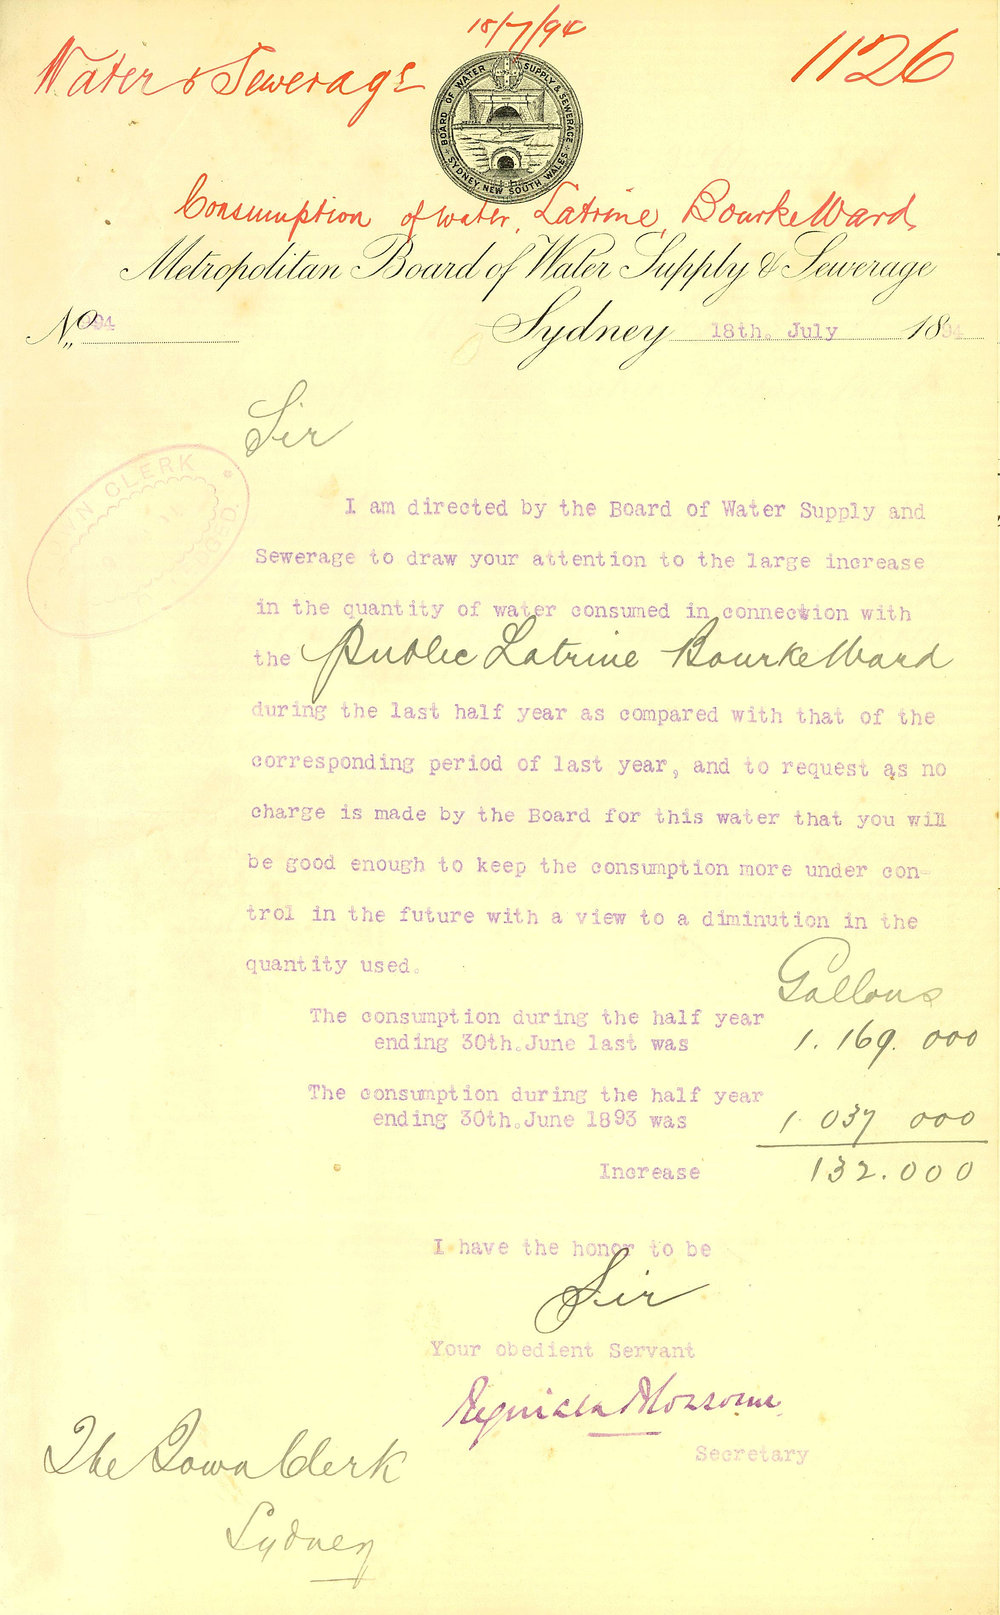 18/7/94
Water & Sewerage
1126
BOARD OF WATER SUPPLY & SEWERAGE
SYDNEY, NEW SOUTH WALES
Consumption of water, Latrine, Bourke Ward
Metropolitan Board of Water Supply & Sewerage
No. 94
Sydney 18th. July 1894
Sir
CLERK
I am directed by the Board of Water Supply and
Sewerage to draw your attention to the large increase
in the quantity of water consumed in connection with
the Public Latrine Bourke Ward
during the last half year as compared with that of the
corresponding period of last year, and to request as no
charge is made by the Board for this water that you will
be good enough to keep the consumption more under con-
trol in the future with a view to a diminution in the
quantity used.
Gallons
The consumption during the half year
ending 30th.June last was 1.169.000
The consumption during the half year
ending 30th.June 1893 was 1 037 000
Increase 132.000
I have the honor to be
Sir
Your obedient Servant
Secretary
The Town Clerk
Sydney